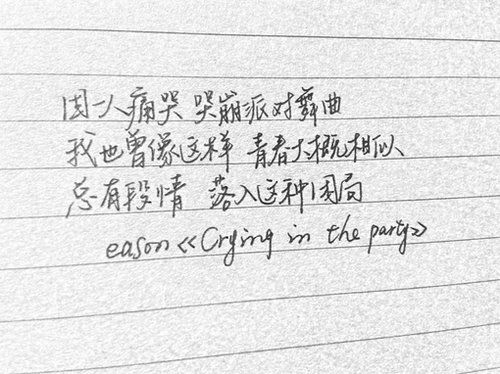 因一人痛哭 哭崩派对舞曲
我也曾像这样 青春大概相似
总有段情 落入这种困局
eason《Crying in the party》